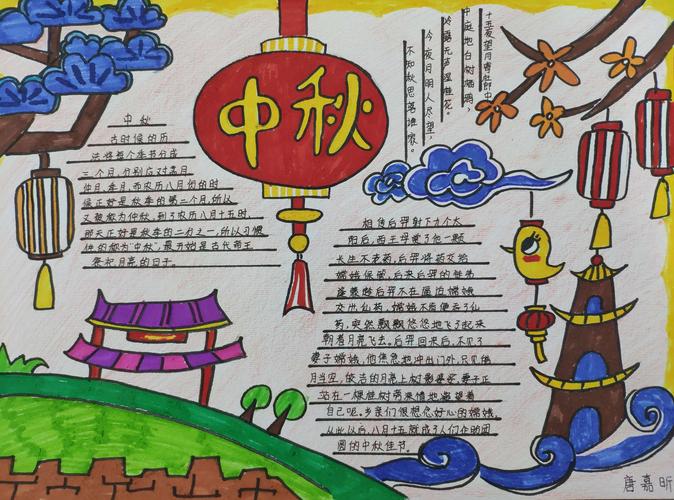 中秋
中秋
古时候的历
法将每个季节分成
三个月,分别应对孟月、
仲月,季月,而农历八月初的时
候正好是秋季的第二个月,所以
又被称为仲秋,到了农历八月十五时,
那天正好是秋季的二分之一,所以习惯
性的称为"中秋",最开始是古代帝王
祭祀月亮的日子。
十五夜望月寄杜郎中
中庭地白树栖鸦,
冷露无声湿桂花。
今夜月明人尽望,
不知秋思落谁家。
相传后羿射下九个太
阳后,西王母赏了他一颗
长生不老药,后羿将药交给
嫦娥保管,后来后羿的徒弟
逢蒙趁后羿不在逼迫嫦娥
交出仙药,嫦娥不愿便吞了仙
药,突然飘飘悠悠地飞了起来
朝着月亮飞去。后羿回来后,不见了
妻子嫦娥,他焦急地冲出门外,只见皓
月当空,皎洁的月亮上树影婆娑,妻子正
站在一棵桂树旁深情地凝望着
自己呢。乡亲们很想念好心的嫦娥,
从此以后,八月十五就成了人们企盼团
圆的中秋佳节。
唐嘉昕